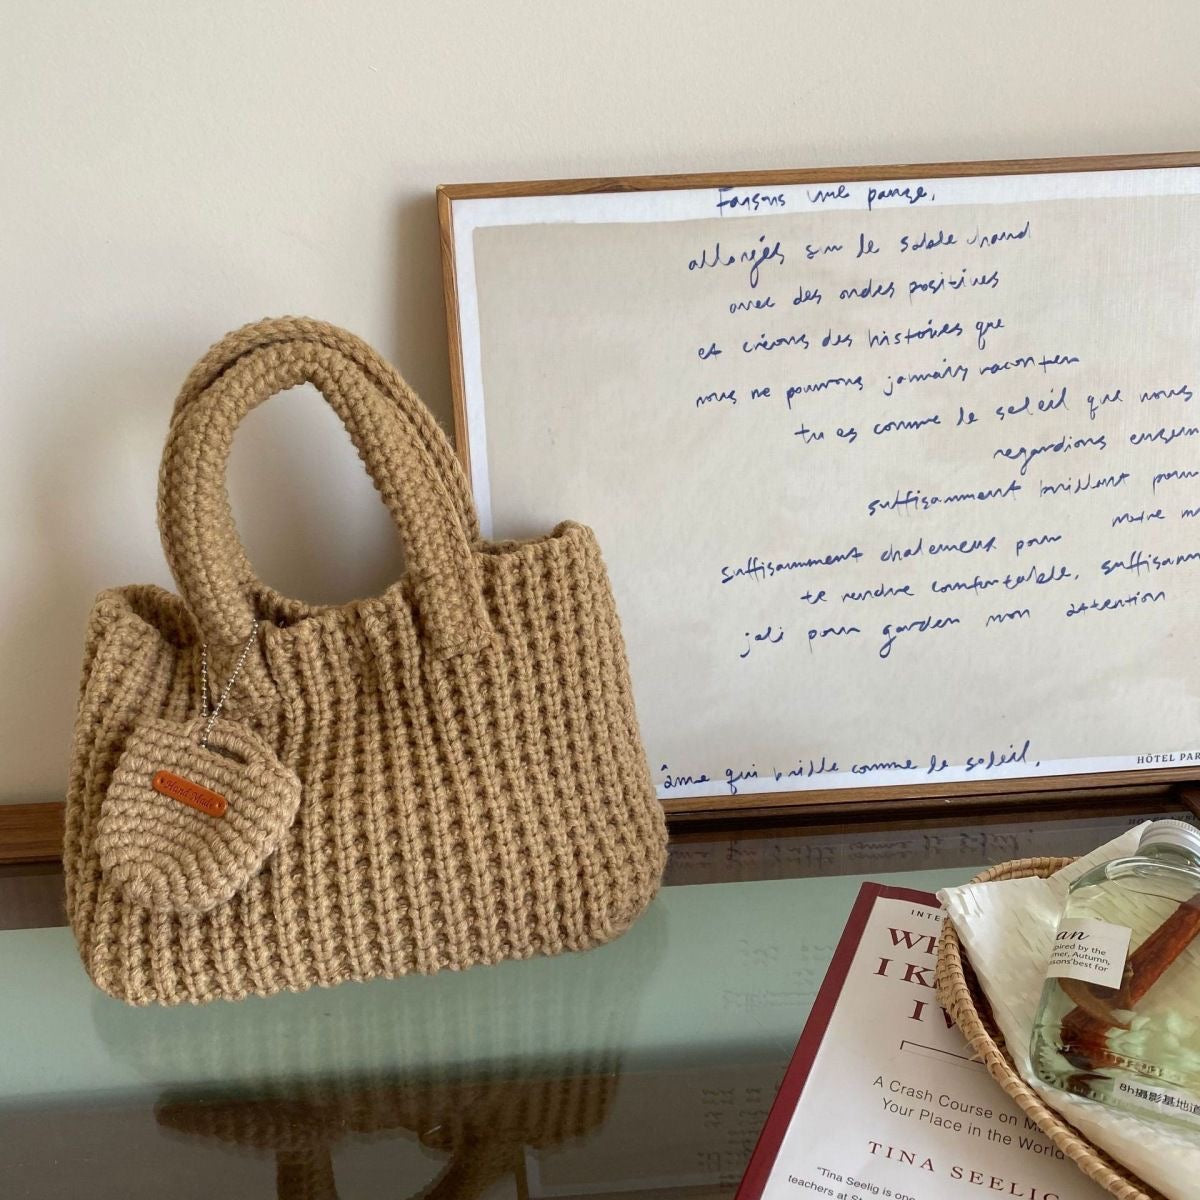 Faisons une pause,
allongés sur le sable chaud
avec des ondes positives
et créons des histoires que
nous ne pourrons jamais raconter
tu es comme le soleil que nous
regardions
suffisamment brillant pour
notre
suffisamment chaleureux pour
te rendre confortable,
joli pour garder mon attention
âme qui brille comme le soleil.
HÔTEL
Hand Made
I
A Crash Course on
Your Place in the World
TINA SEELIG
"Tina Seelig is one
teachers at
by the
Autumn,
best for
8h攝影基地道